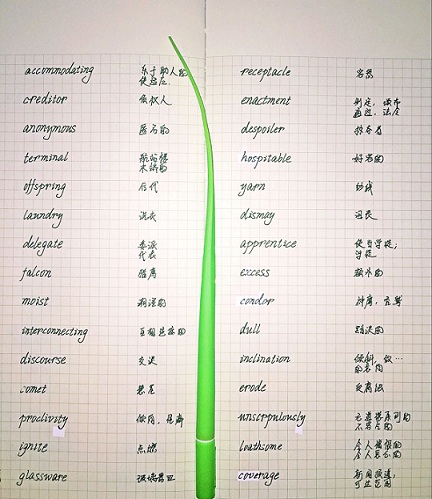 accommodating 乐于助人的
使适应
creditor 债权人
anonymous 匿名的
terminal 航站楼
末端的
offspring 后代
laundry 洗衣
delegate 委派
代表
falcon 猎鹰
moist 潮湿的
interconnecting 互相连接的
discourse 交谈
comet 彗星
proclivity 倾向
ignite 点燃
glassware 玻璃器皿
receptacle 容器
enactment 制定
despoiler 掠夺者
hospitable 好客的
yarn 纱线
dismay 沮丧
apprentice 使当学徒;
学徒
excess 额外的
condor 神鹰
dull
inclination 倾斜
erode 受腐蚀
unscrpulously
loathsome 令人憎恨的
令人
coverage 新闻报道;
可达范围